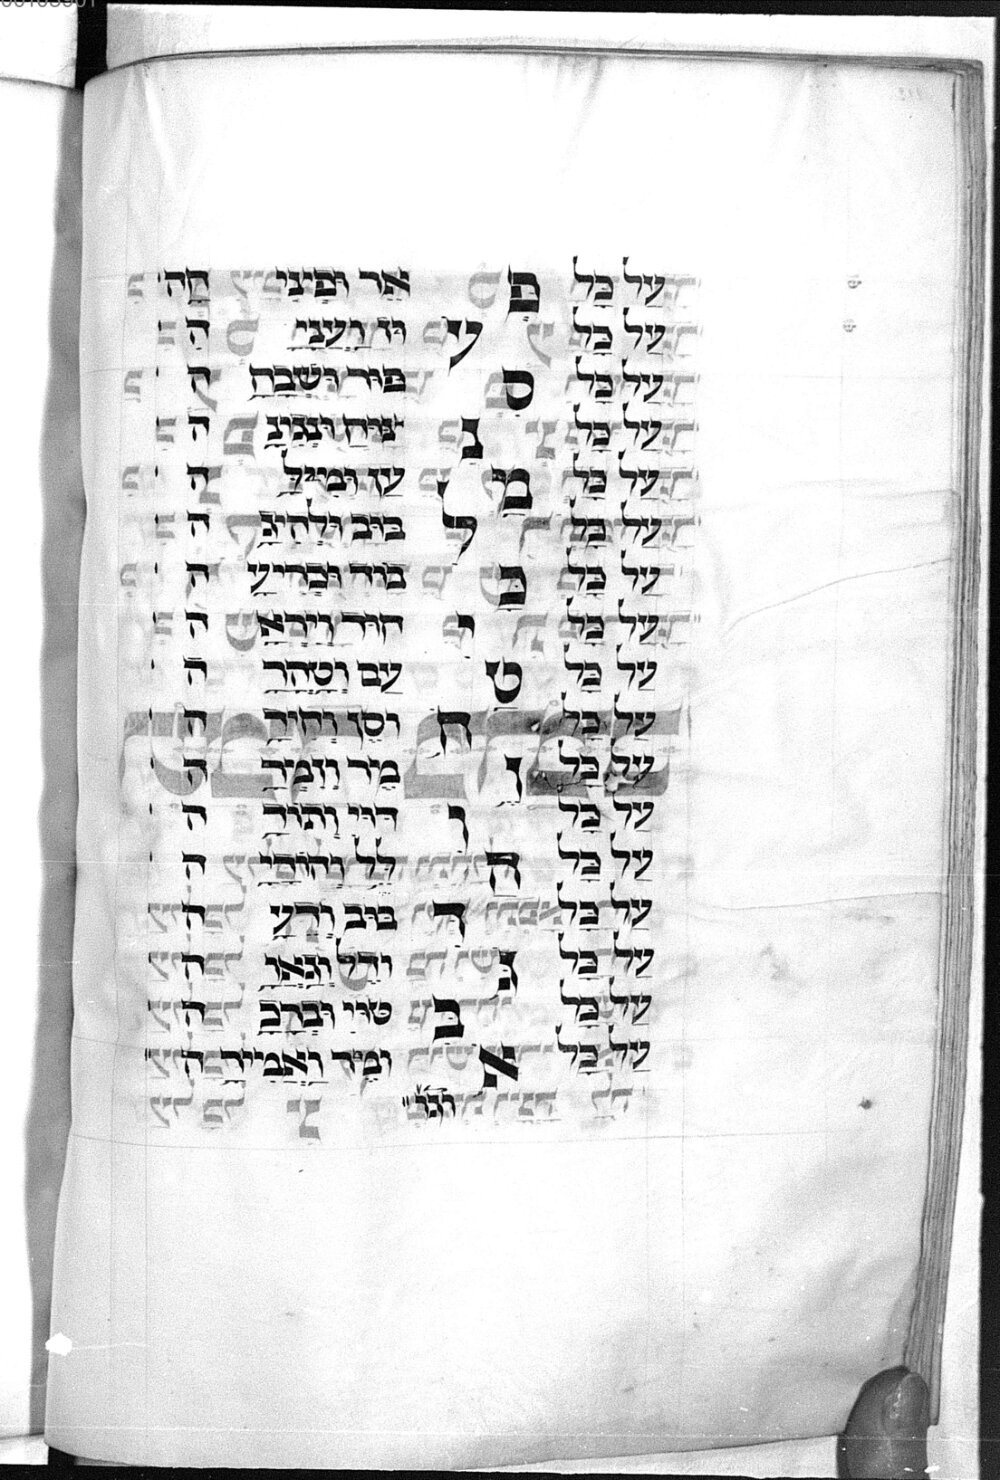 על כל פאר ופיניי חה'
על כל עוז ועניי ה'
על כל ספור ושבח ה'
על כל ניצוח ונגינ ה'
על כל מען ומיל ה'
על כל לבוב ולהיג ה'
על כל כבוד וכריע ה'
על כל יחוד ויראה'
על כל טעם וטהר ה'
על כל חוסן וחויה'
על כל זמר וזמרה'
על כל ודוי ותודה'
על כל הלל והומי ה'
על כל דבוב ודע ה'
על כל גודל וגאו ה'
על כל בטוי וברכ ה'
על כל אומר ואמיר ה"
וכו"